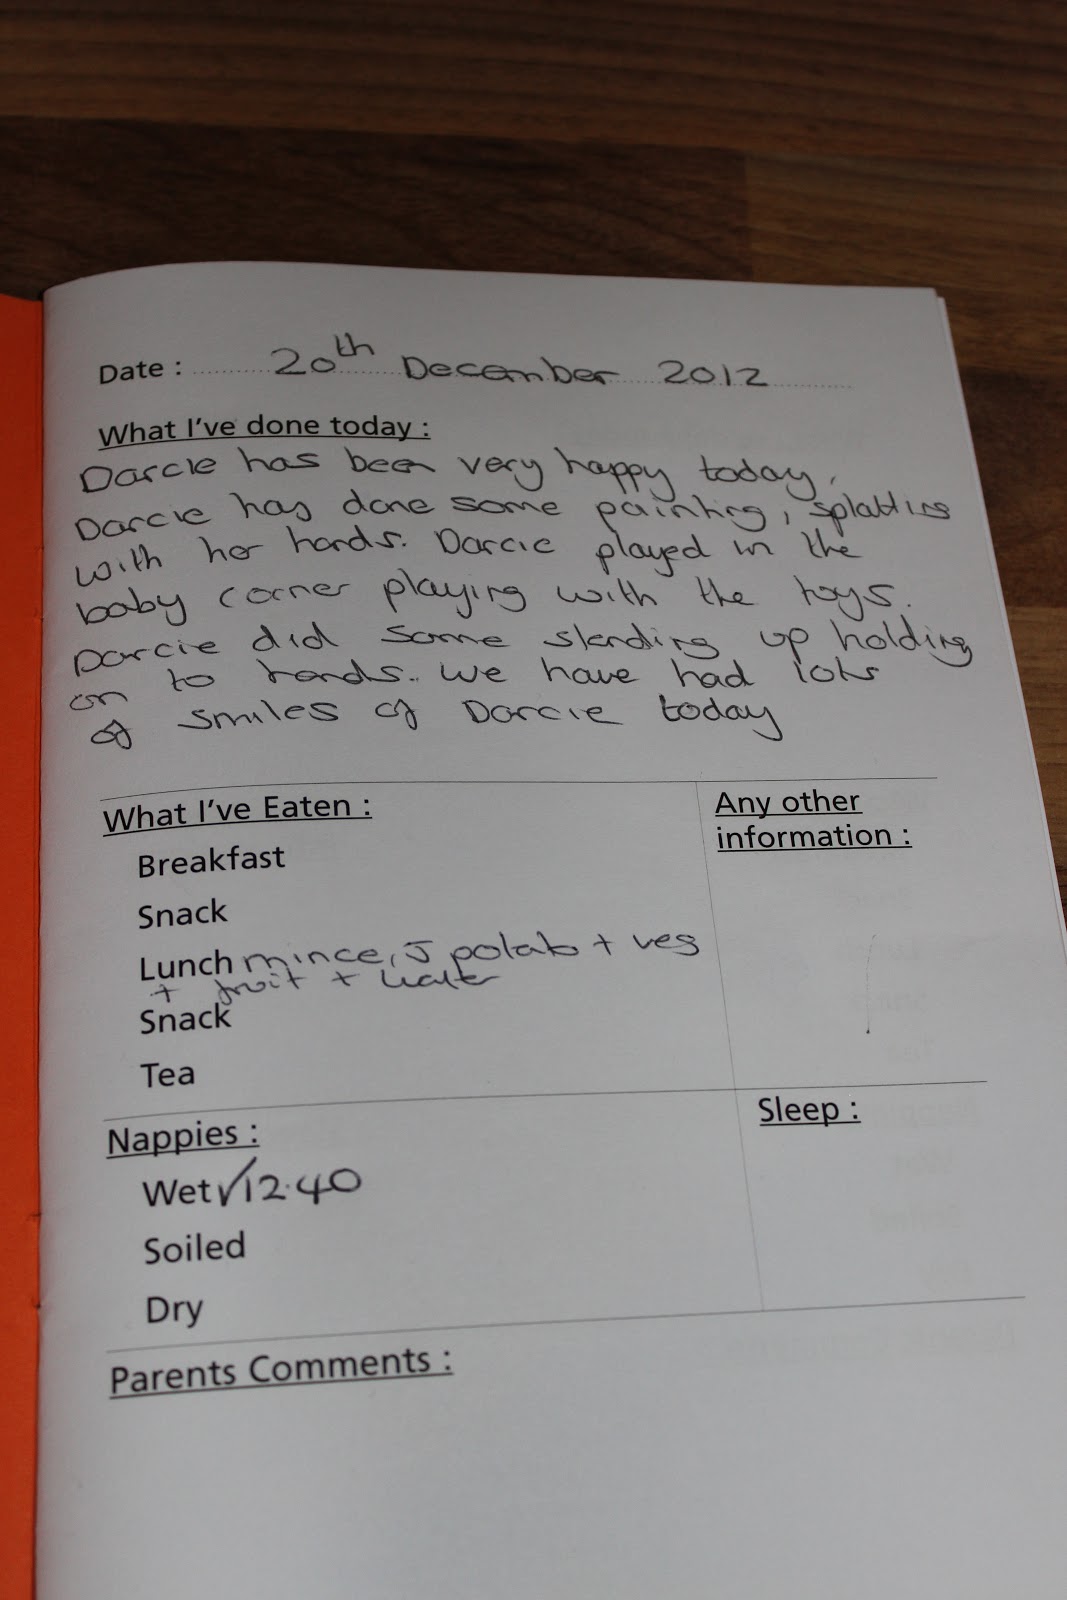 Date : 20th December 2012
What I've done today :
Darcie has been very happy today,
Darcie has done some painting, splatting
with her hands. Darcie played in the
baby corner playing with the toys.
Darcie did some standing up holding
on to hands. We have had lots
of smiles of Darcie today
What I've Eaten :
Any other
information :
Breakfast
Snack
Lunch mince, J potato + veg
+ fruit + water
Snack
Tea
Nappies :
Sleep :
Wet √12.40
Soiled
Dry
Parents Comments :